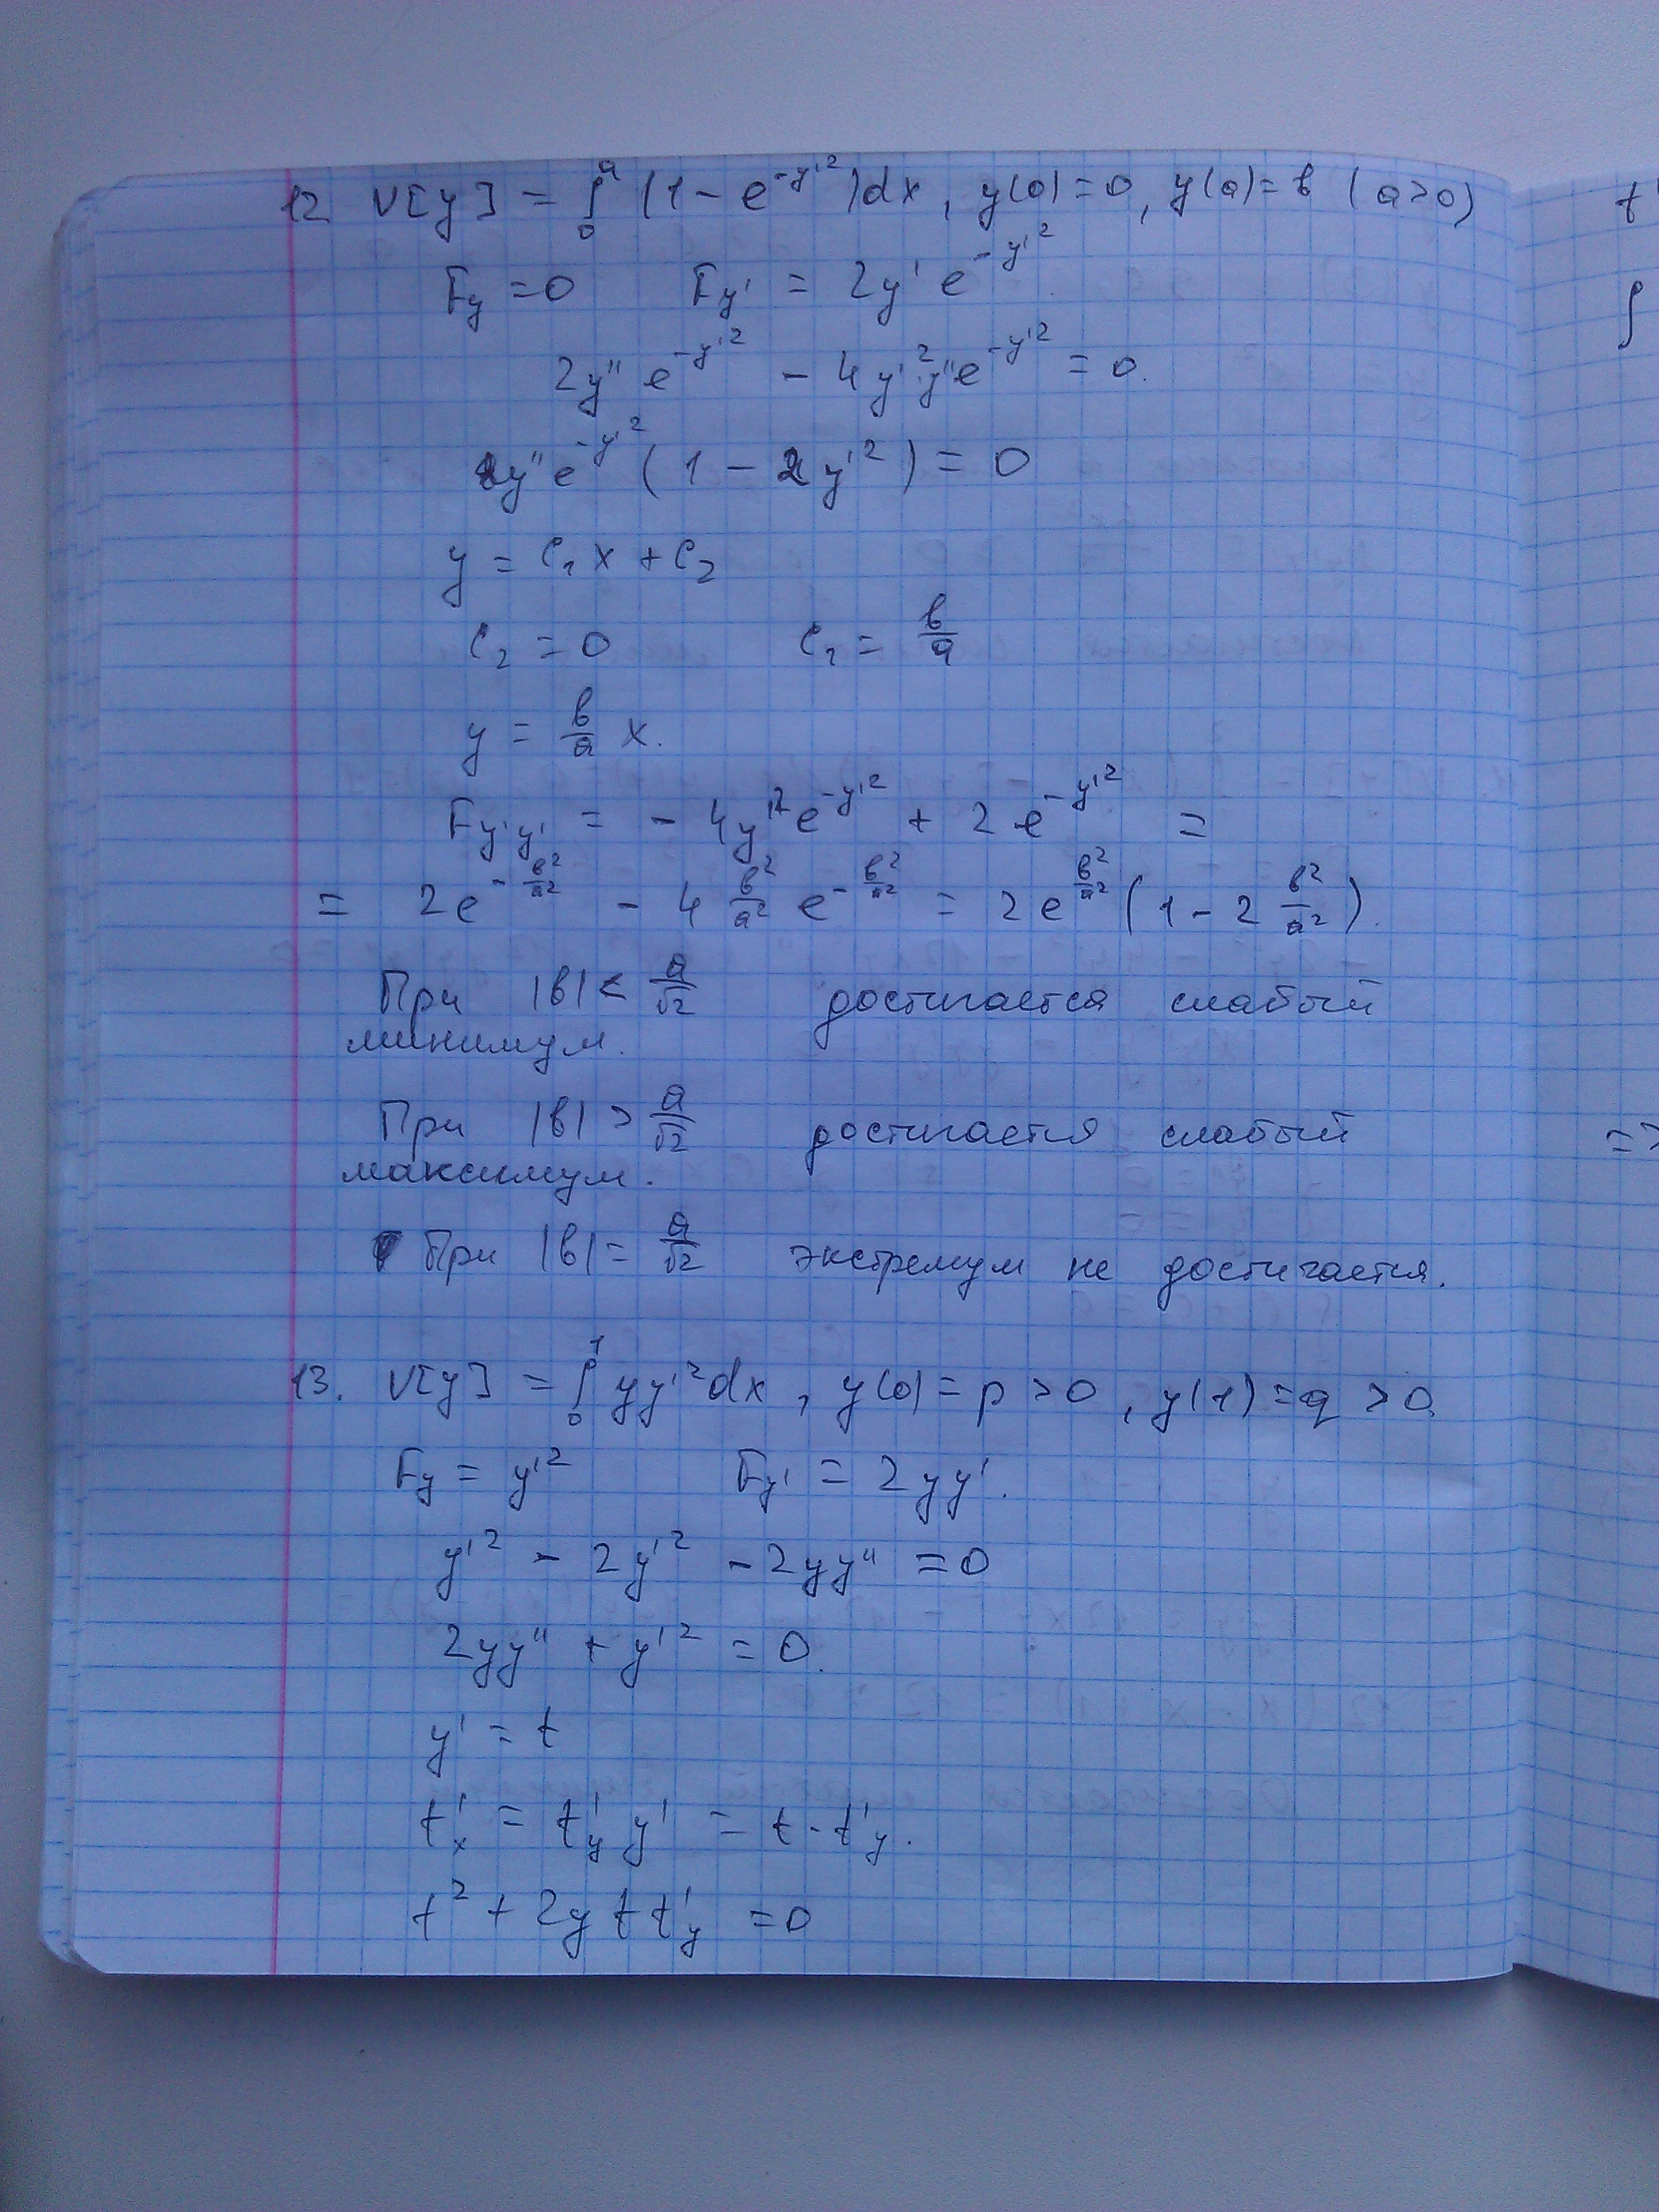 12 V[y] = ∫₀ᵃ (1 - e^{-y'^2})dx, y(0)=0, y(a)=в (a>0)
F_y = 0 F_{y'} = 2y' e^{-y'^2}
2y'' e^{-y'^2} - 4y'^2 y'' e^{-y'^2} = 0.
2y'' e^{-y'^2} (1 - 2y'^2) = 0
y = C₁x + C₂
C₂ = 0 C₁ = в/a
y = в/a x.
F_{y'y'} = -4y'^2 e^{-y'^2} + 2e^{-y'^2} =
= 2e^{-в²/a²} - 4 в²/a² e^{-в²/a²} = 2e^{в²/a²} (1 - 2 в²/a²).
При |в| < a/√2 достигается слабый
минимум.
При |в| > a/√2 достигается слабый
максимум.
При |в| = a/√2 экстремум не достигается.
13. V[y] = ∫₀¹ yy'^2 dx, y(0) = p > 0, y(1) = q > 0
F_y = y'^2 F_{y'} = 2yy'.
y'^2 - 2y'^2 - 2yy'' = 0
2yy'' + y'^2 = 0.
y' = t
t'_x = t'_y y' = t·t'_y.
t² + 2y t t'_y = 0
t'
∫
=>